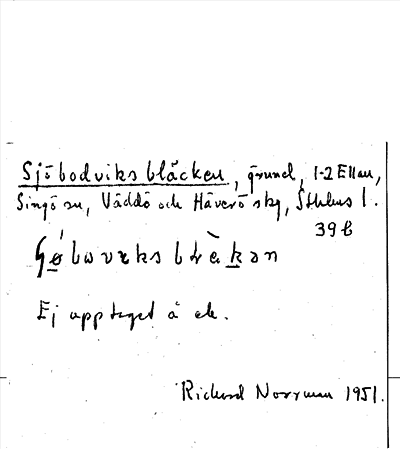 Sjöbodviksbläcken, grund, 1-2 Ellan,
Singö sn, Väddö och Häverö skg, Sthlms l.
39 b
Ej upptaget å ek.
Richard Norrman 1951.